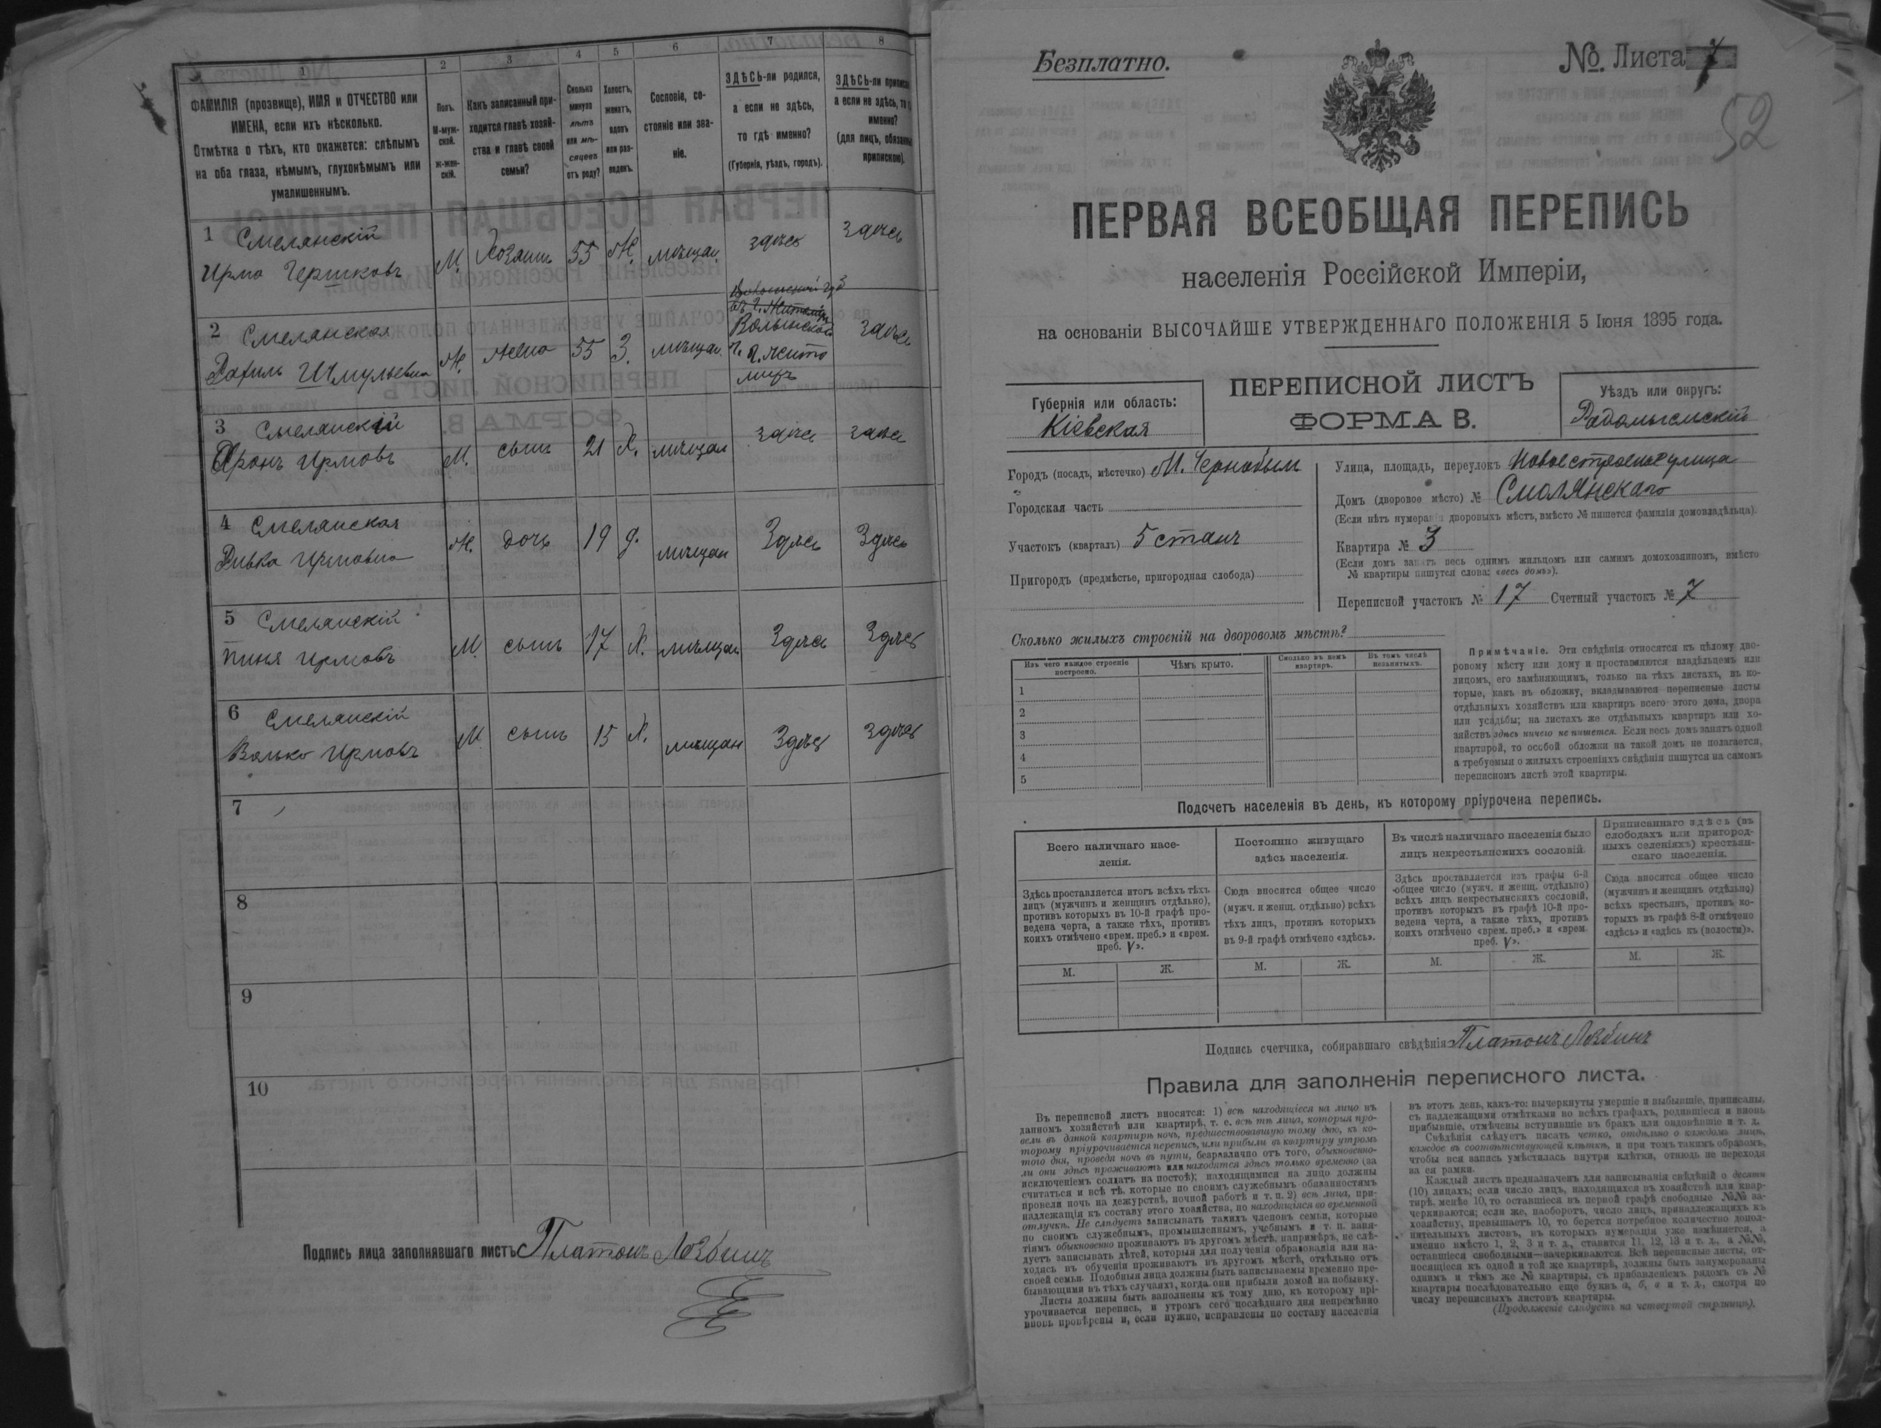 1 2 3 4 5 6 7 8
ФАМИЛІЯ (прозвище), ИМЯ и ОТЧЕСТВО или
ИМЕНА, если ихъ нѣсколько.
Отмѣтка о тѣхъ, кто окажется: слѣпымъ
на оба глаза, нѣмымъ, глухонѣмымъ или
умалишеннымъ.
Полъ.
М-муж-
ской.
ж-жен-
скій.
Какъ записанный при-
ходится главѣ хозяй-
ства и главѣ своей
семьи?
Сколько
минуло
лѣтъ
или мѣ-
сяцевъ
отъ роду?
Холостъ,
женатъ,
вдовъ
или раз-
веденъ.
Сословіе, со-
стояніе или зва-
ніе.
ЗДѢСЬ-ли родился,
а если не здѣсь,
то гдѣ именно?
(Губернія, уѣздъ, городъ).
ЗДѢСЬ-ли приписанъ
а если не здѣсь, то
именно?
(для лицъ, обязанныхъ
припискою).
1 Смелянскій
Ирма Гершковъ М. Хозяинъ 55 Ж. мѣщан. здѣсь здѣсь
2 Смелянская
Рахиль Шмулевна Ж. жена 55 З. мѣщан.
Волынской
г. Жито
миръ
здѣсь
3 Смелянскій
Аронъ Ирмовъ М. сынъ 21 Х. мѣщан здѣсь здѣсь
4 Смелянская
Ривка Ирмовна Ж. дочь 19 д. мѣщан Здѣсь Здѣсь
5 Смелянскій
Пиня Ирмовъ М. сынъ 17 Х. мѣщан Здѣсь Здѣсь
6 Смелянскій
Волько Ирмовъ М сынъ 15 Х. мѣщан Здѣсь Здѣсь
7
8
9
10
Подпись лица заполнявшаго листъ Платонъ
Безплатно.
№ Листа 7
52
ПЕРВАЯ ВСЕОБЩАЯ ПЕРЕПИСЬ
населенія Россійской Имперіи,
на основаніи ВЫСОЧАЙШЕ УТВЕРЖДЕННАГО ПОЛОЖЕНІЯ 5 Іюня 1895 года.
Губернія или область:
Кіевская
ПЕРЕПИСНОЙ ЛИСТЪ
ФОРМА В.
Уѣздъ или округъ:
Радомысльскій
Городъ (посадъ, мѣстечко) М. Чернобыль
Городская часть
Участокъ (кварталъ) 5 станъ
Пригородъ (предмѣстье, пригородная слобода)
Улица, площадь, переулокъ Новостроенская улица
Домъ (дворовое мѣсто) № Смолянскаго
(Если нѣтъ нумераціи дворовыхъ мѣстъ, вмѣсто № пишется фамилія домовладѣльца).
Квартира № 3
(Если домъ занятъ весь однимъ жильцомъ или самимъ домохозяиномъ, вмѣсто
№ квартиры пишутся слова: «весь домъ»).
Переписной участокъ № 17 Счетный участокъ № 7
Сколько жилыхъ строеній на дворовомъ мѣстѣ?
Изъ чего каждое строеніе
построено.
Чѣмъ крыто.
Сколько въ немъ
квартиръ.
Въ томъ числѣ
незанятыхъ.
1
2
3
4
5
Примѣчаніе. Эти свѣдѣнія относятся къ цѣлому дво-
ровому мѣсту или дому и проставляются владѣльцемъ или
лицомъ, его замѣняющимъ, только на тѣхъ листахъ, въ ко-
торые, какъ въ обложку, вкладываются переписные листы
отдѣльныхъ хозяйствъ или квартиръ всего этого дома, двора
или усадьбы; на листахъ же отдѣльныхъ квартиръ или хо-
зяйствъ здѣсь ничего не пишется. Если весь домъ занятъ одной
квартирой, то особой обложки на такой домъ не полагается,
а требуемыя о жилыхъ строеніяхъ свѣдѣнія пишутся на самомъ
переписномъ листѣ этой квартиры.
Подсчетъ населенія въ день, къ которому пріурочена перепись.
Всего наличнаго насе-
ленія.
Постоянно живущаго
здѣсь населенія.
Въ числѣ наличнаго населенія было
лицъ некрестьянскихъ сословій.
Приписаннаго здѣсь (въ
слободахъ или пригород-
ныхъ селеніяхъ) крестьян-
скаго населенія.
Здѣсь проставляется итогъ всѣхъ тѣхъ
лицъ (мужчинъ и женщинъ отдѣльно),
противъ которыхъ въ 10-й графѣ про-
ведена черта, а также тѣхъ, противъ
коихъ отмѣчено «врем. преб.» и «врем.
преб. V».
Сюда вносится общее число
(мужч. и женщ. отдѣльно) всѣхъ
тѣхъ лицъ, противъ которыхъ
въ 9-й графѣ отмѣчено «здѣсь».
Здѣсь проставляется изъ графы 6-й
общее число (мужч. и женщ. отдѣльно)
всѣхъ лицъ некрестьянскихъ сословій,
противъ которыхъ въ графѣ 10-й про-
ведена черта, а также тѣхъ, противъ
коихъ отмѣчено «врем. преб.» и «врем.
преб. V».
Сюда вносится общее число
(мужчинъ и женщинъ отдѣльно)
всѣхъ крестьянъ, противъ ко-
торыхъ въ графѣ 8-й отмѣчено
«здѣсь» и «здѣсь къ (волости)».
М. Ж. М. Ж. М. Ж. М. Ж.
Подпись счетчика, собиравшаго свѣдѣнія Платонъ
Правила для заполненія переписного листа.
Въ переписной листъ вносятся: 1) всѣ находящіеся на лицо въ
данномъ хозяйствѣ или квартирѣ, т. е. всѣ тѣ лица, которыя про-
вели въ данной квартирѣ ночь, предшествовавшую тому дню, къ ко-
торому пріурочивается перепись, или прибыли въ квартиру утромъ
того дня, проведя ночь въ пути, безразлично отъ того, обыкновенно-
ли они здѣсь проживаютъ или находятся здѣсь только временно (за
исключеніемъ солдатъ на постоѣ); находящимися на лицо должны
считаться и всѣ тѣ, которые по своимъ служебнымъ обязанностямъ
провели ночь на дежурствѣ, ночной работѣ и т. п. 2) всѣ лица, при-
надлежащія къ составу этого хозяйства, но находящіяся во временной
отлучкѣ. Не слѣдуетъ записывать такихъ членовъ семьи, которые
по своимъ служебнымъ, промышленнымъ, учебнымъ и т. п. заня-
тіямъ обыкновенно проживаютъ въ другомъ мѣстѣ, напримѣръ, не слѣ-
дуетъ записывать дѣтей, которыя для полученія образованія или на-
ходясь въ обученіи проживаютъ въ другомъ мѣстѣ, отдѣльно отъ
своей семьи. Подобныя лица должны быть записываемы временно пре-
бывающими въ тѣхъ случаяхъ, когда они прибыли домой на побывку.
Листы должны быть заполнены къ тому дню, къ которому прі-
урочивается перепись, и утромъ сего послѣдняго дня непремѣнно
вновь провѣрены и, если нужно, исправлены по составу населенія
въ этотъ день, какъ-то: вычеркнуты умершіе и выбывшіе, приписаны,
съ надлежащими отмѣтками во всѣхъ графахъ, родившіеся и вновь
прибывшіе, отмѣчены вступившіе въ бракъ или овдовѣвшіе и т. д.
Свѣдѣнія слѣдуетъ писать четко, отдѣльно о каждомъ лицѣ,
каждое въ соотвѣтствующей клѣткѣ, и при томъ такимъ образомъ,
чтобы вся запись умѣстилась внутри клѣтки, отнюдь не переходя
за ея рамки.
Каждый листъ предназначенъ для записыванія свѣдѣній о десяти
(10) лицахъ; если число лицъ, находящихся въ хозяйствѣ или квар-
тирѣ, менѣе 10, то оставшіеся въ первой графѣ свободные №№ за-
черкиваются; если же, наоборотъ, число лицъ, принадлежащихъ къ
хозяйству, превышаетъ 10, то берется потребное количество допол-
нительныхъ листовъ, въ которыхъ нумерація уже измѣняется, а
именно вмѣсто 1, 2, 3 и т. д., ставится 11, 12, 13 и т. д., а №№,
оставшіеся свободными—зачеркиваются. Всѣ переписные листы, от-
носящіеся къ одной и той же квартирѣ, должны быть занумерованы
однимъ и тѣмъ же № квартиры, съ прибавленіемъ рядомъ съ №
квартиры послѣдовательно еще буквъ а, б, в и т. д., смотря по
числу переписныхъ листовъ квартиры.
(Продолженіе слѣдуетъ на четвертой страницѣ).